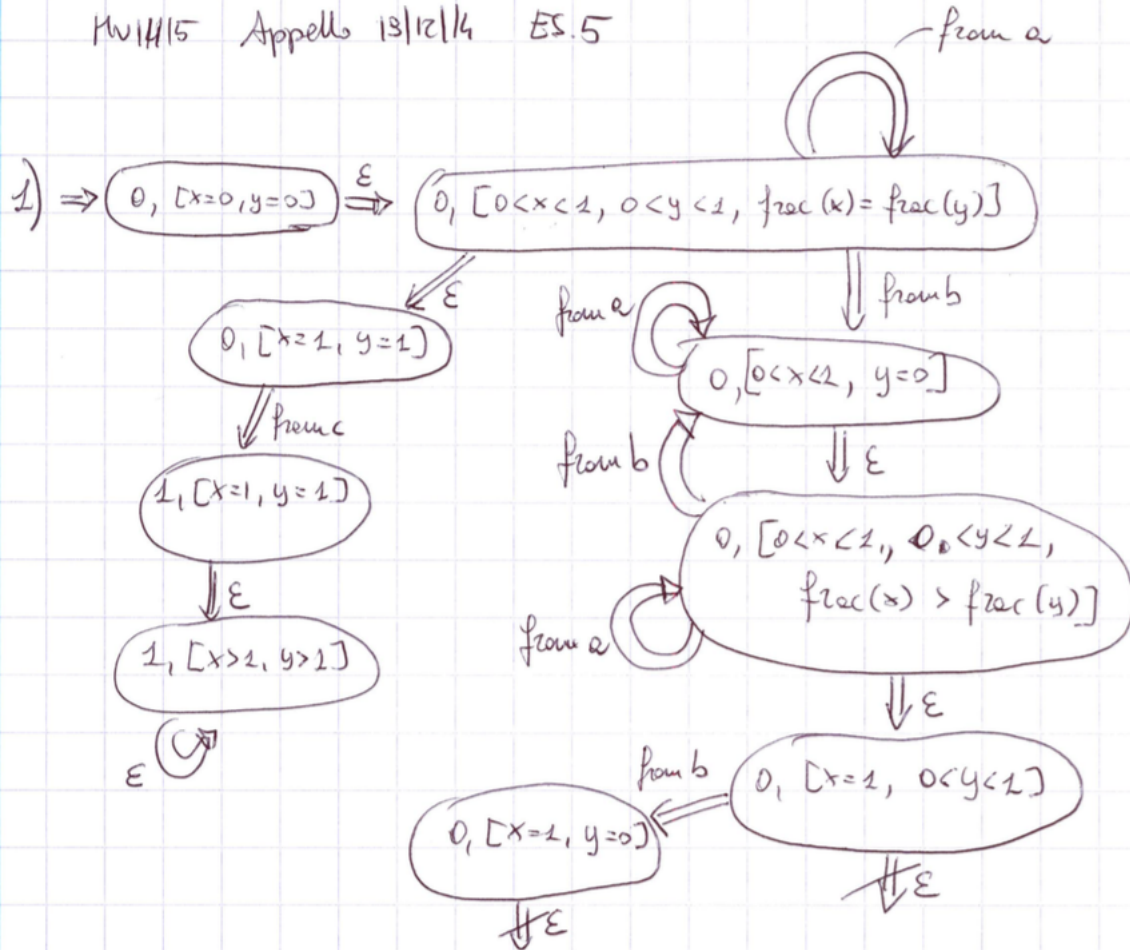 Appello 19/12/14 ES.5
from a
1) ⇒ 0, [x=0, y=0] ε ⇒ 0, [0<x<1, 0<y<1, frac(x)=frac(y)]
ε
from b
from a
0, [x=1, y=1]
0, [0<x<1, y=0]
from c
from b
ε
1, [x=1, y=1]
0, [0<x<1, 0<y<1,
frac(x) > frac(y)]
ε
from a
1, [x>1, y>1]
ε
ε
from b
0, [x=1, 0<y<1]
0, [x=1, y=0]
ε
ε